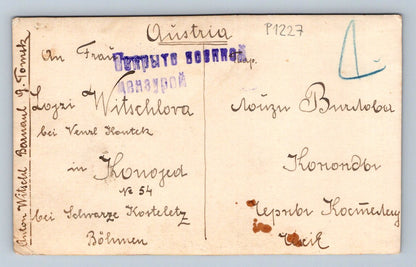 Austria
P1227
An Frau
Вскрыто военной
цензурой
Witschlova
bei Venzl Kontek
in Konojed
№ 54
bei Schwarze Kosteletz
Böhmen
Лойзи Вичлова
Кононды
Черны Костелец
Anton Witschl Barnaul g. Tomsk